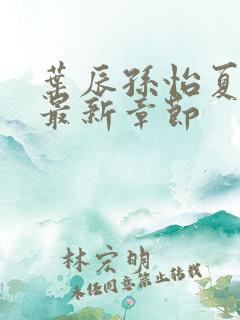 叶辰孙怡夏
最新章节
林宏明
未经同意禁止转载